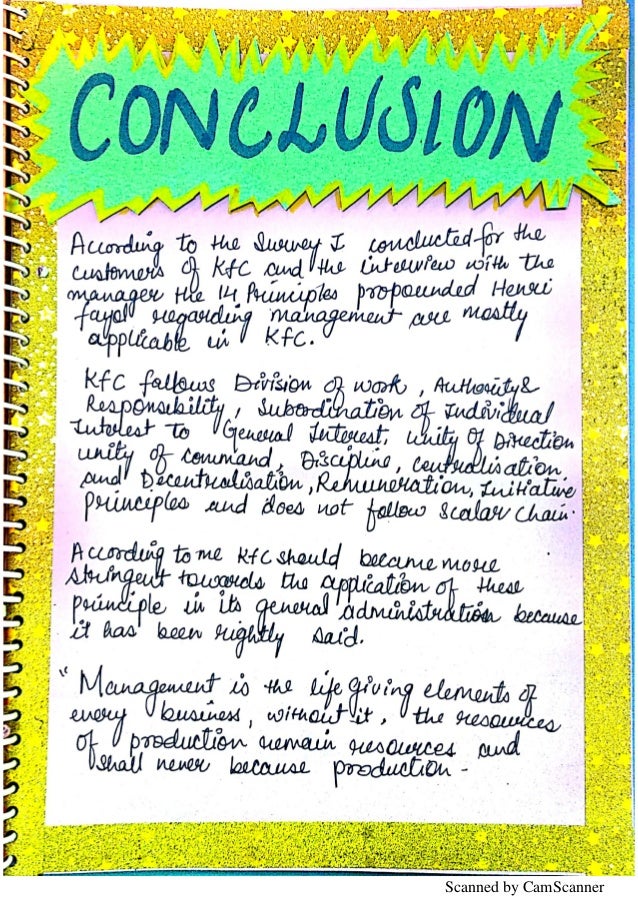 CONCLUSION
According to the Survey I conducted for the
customers of KFC and the interview with the
manager the 14 Principles propounded Henri
fayol regarding management are mostly
applicable in KFC.
KFC follows Division of work, Authority &
Responsibility, Subordination of Individual
Interest to General Interest, Unity Of Direction
unity of command, Discipline, centralisation
and Decentralisation, Remuneration, Initiative
principles and does not follow Scalar Chain.
According to me KFC should became more
stringent towards the application of these
principle in its general administration because
it has been rightly said.
"Management is the life giving elements of
every business, without it, the resources
of production remain resources and
shall never because production -
Scanned by CamScanner